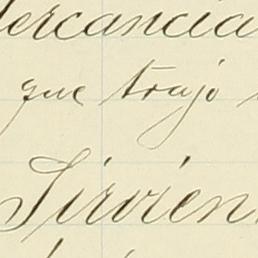 mercancia
que trajo
Sirvien